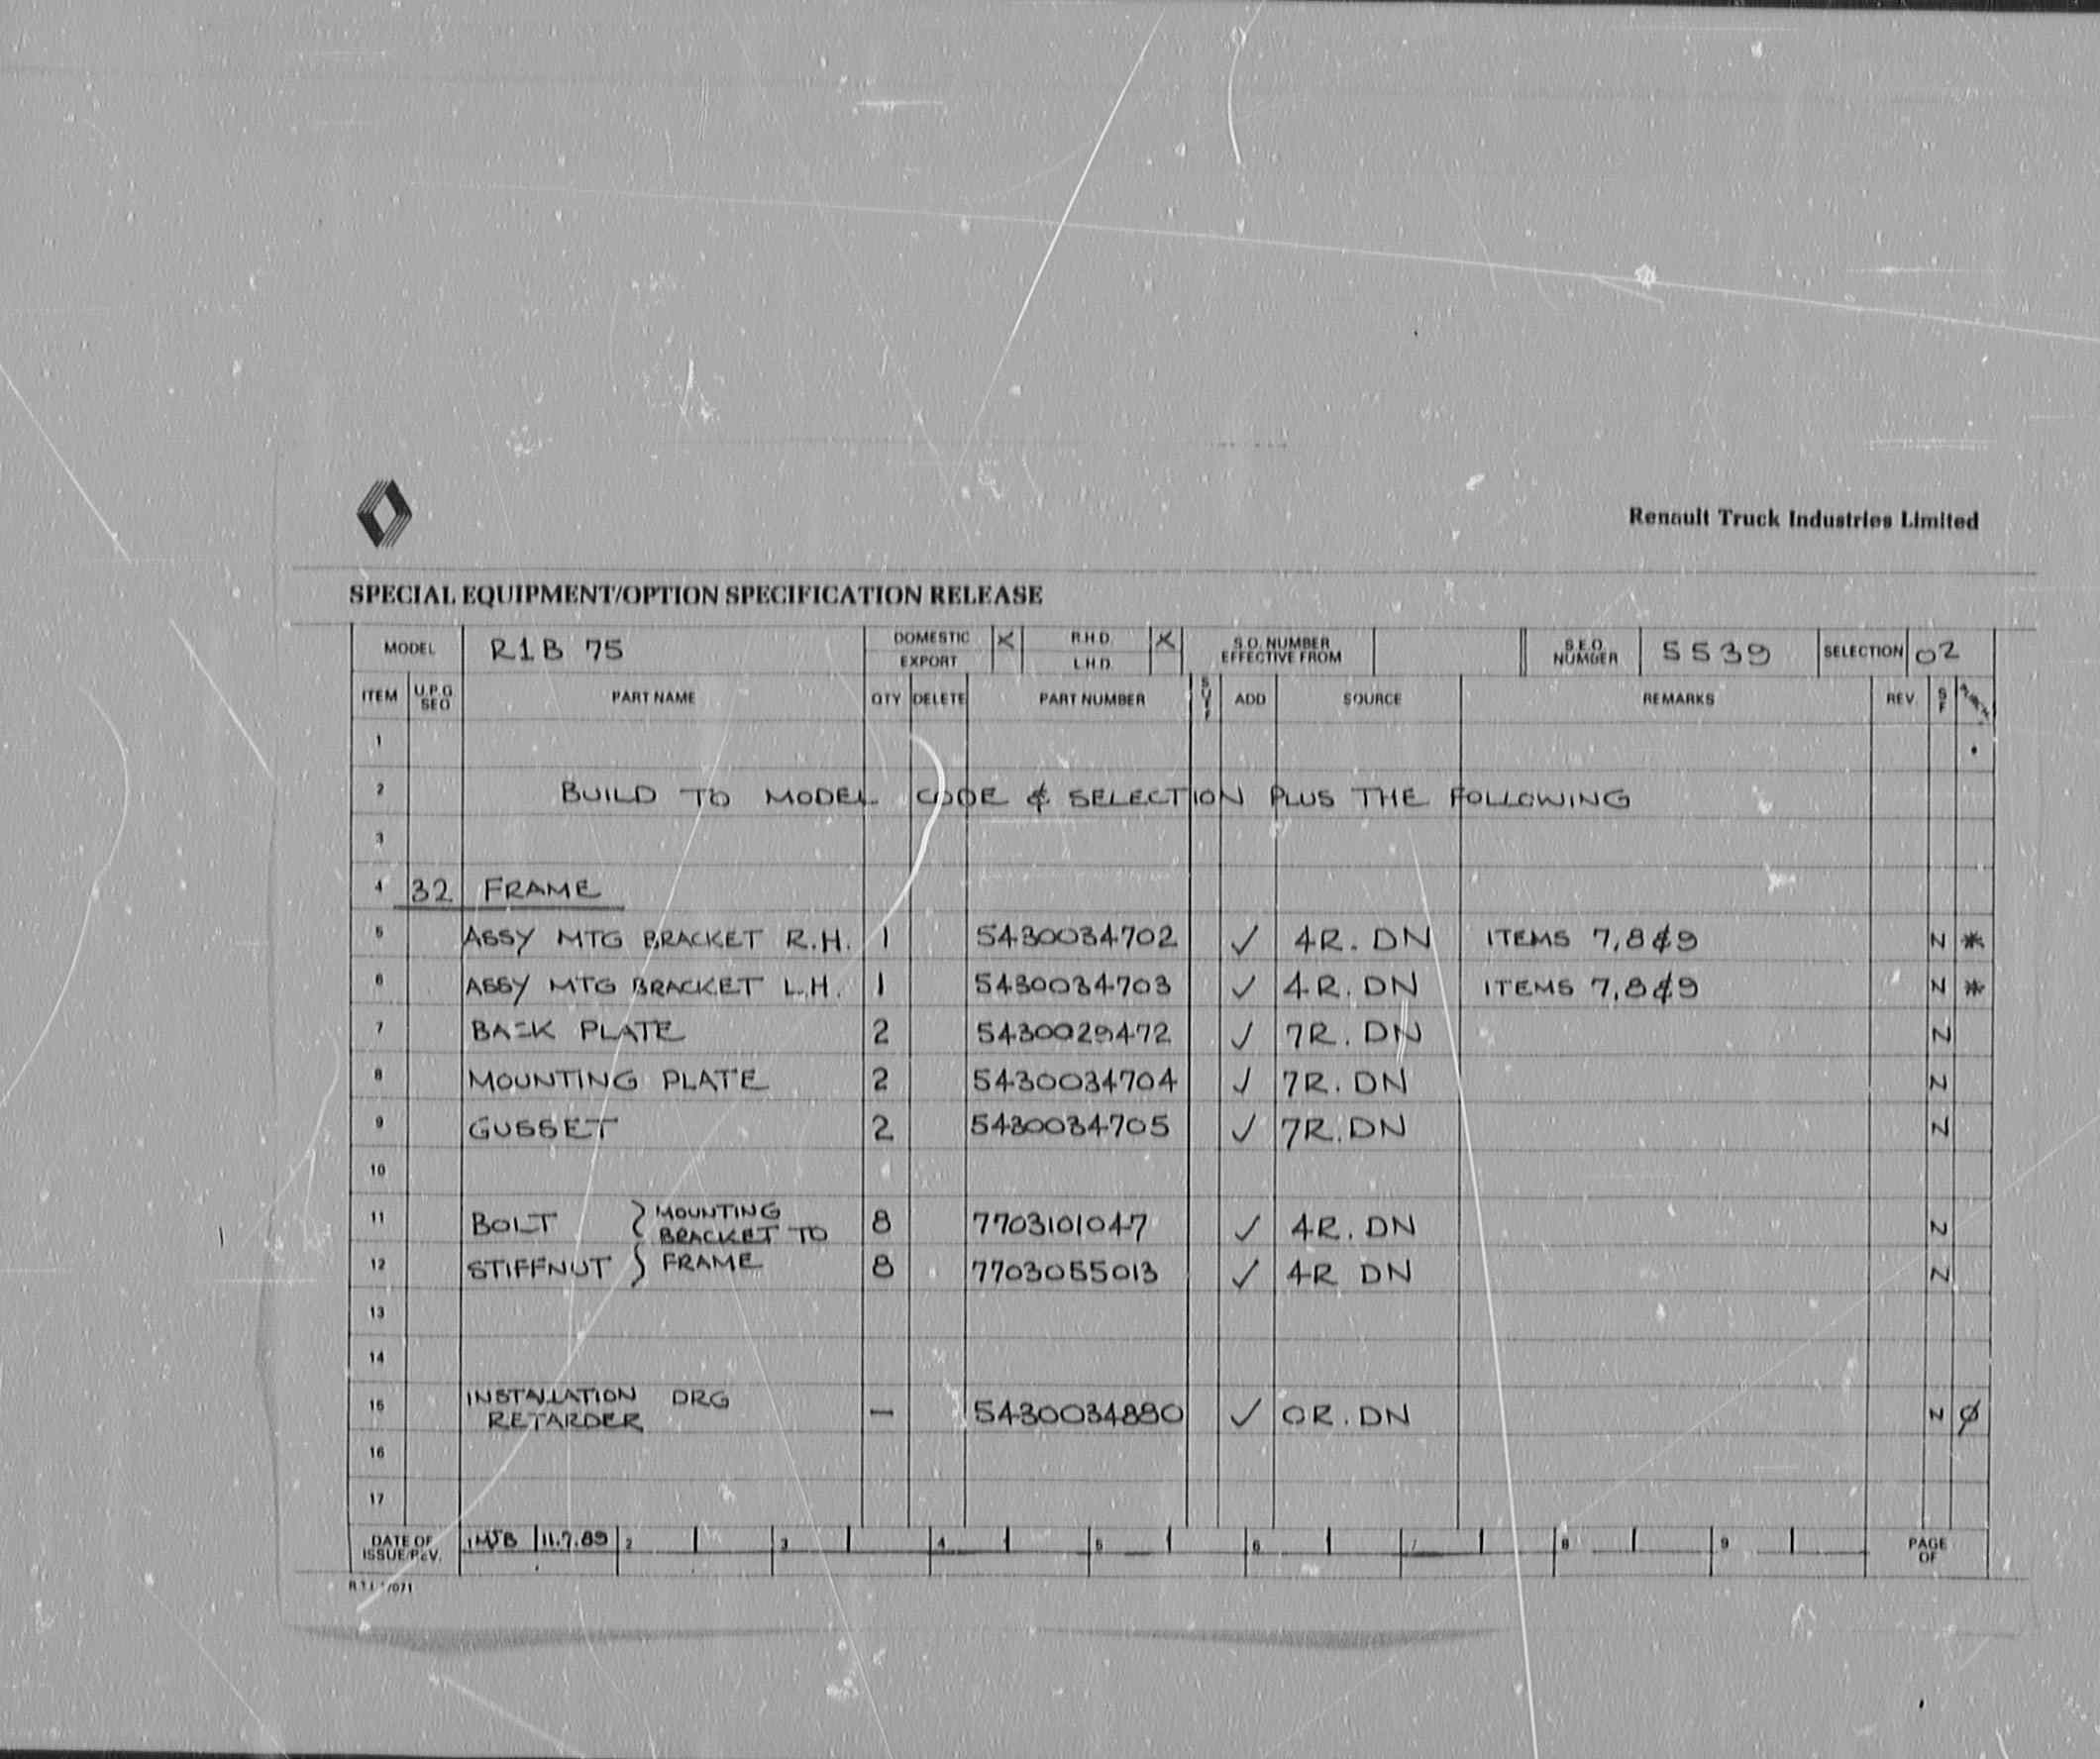 Renault Truck Industries Limited
SPECIAL EQUIPMENT/OPTION SPECIFICATION RELEASE
MODEL R1B 75 DOMESTIC X R.H.D. X S.O. NUMBER EFFECTIVE FROM S.E.O. NUMBER 5539 SELECTION 02
EXPORT L.H.D.
ITEM U.P.G. SEQ PART NAME QTY DELETE PART NUMBER ADD SOURCE REMARKS REV. S F
1
2 BUILD TO MODEL CODE & SELECTION PLUS THE FOLLOWING
3
4 32 FRAME
5 ASSY MTG BRACKET R.H. 1 5430034702 ✓ 4R. DN ITEMS 7,8&9 N *
6 ASSY MTG BRACKET L.H. 1 5430034703 ✓ 4R. DN ITEMS 7,8&9 N *
7 BACK PLATE 2 5430029472 ✓ 7R. DN N
8 MOUNTING PLATE 2 5430034704 ✓ 7R. DN N
9 GUSSET 2 5430034705 ✓ 7R. DN N
10
11 BOLT } MOUNTING BRACKET TO 8 7703101047 ✓ 4R. DN N
12 STIFFNUT } FRAME 8 7703055013 ✓ 4R DN N
13
14
15 INSTALLATION DRG RETARDER — 5430034880 ✓ 0R. DN N Ø
16
17
DATE OF ISSUE/REV. 1 MJB 11.7.89 2 3 4 5 6 7 8 9 PAGE OF